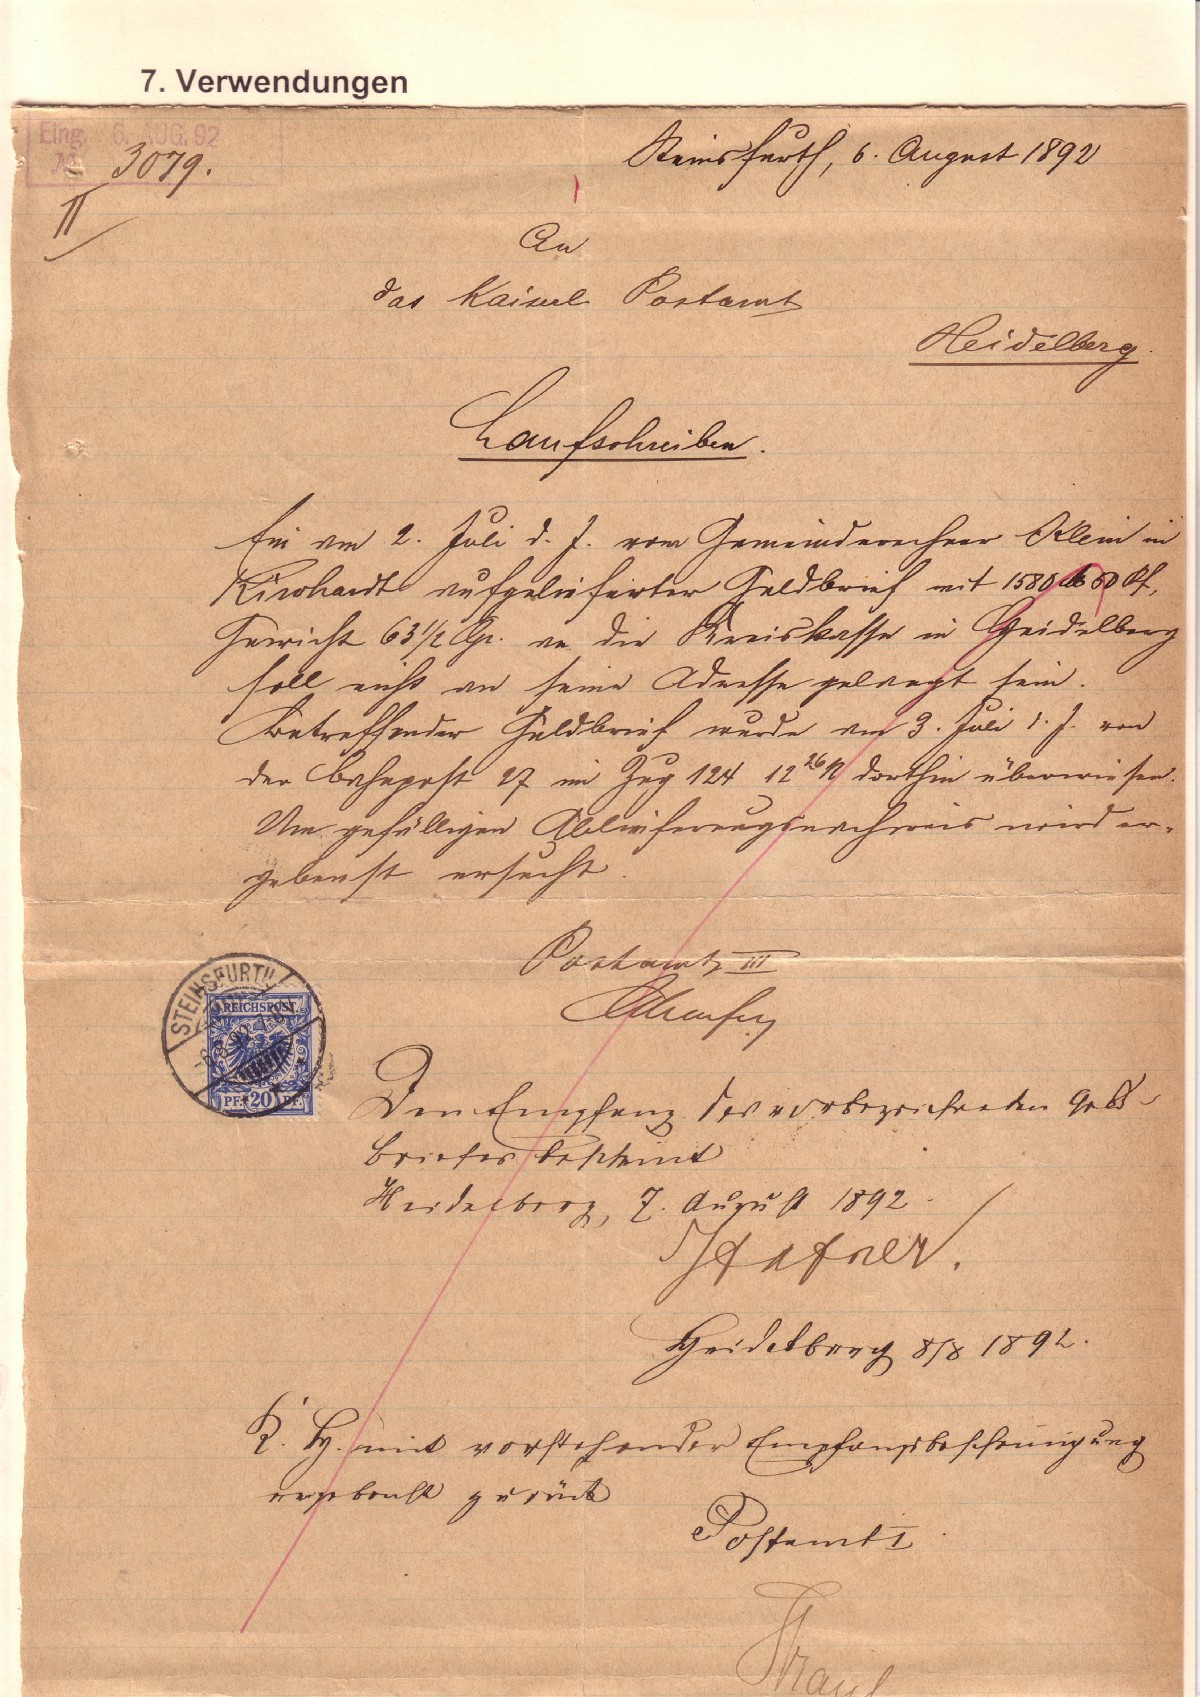 7. Verwendungen
Eing. 6. AUG. 92
3079.
II
Steinsfurth, 6. August 1892
An
das Kaiserl. Postamt
Heidelberg.
Laufschreiben.
Ein am 2. Juli d. J. vom Gemeinderechner Klein in
Kirchardt aufgelieferter Geldbrief mit 1580 M 50 Pf,
Gewicht 63 1/2 Gr. an die Kreiskasse in Heidelberg
soll nicht an seine Adresse gelangt sein.
Betreffender Geldbrief wurde am 3. Juli l. J. von
der Bahnpost 27 im Zug 124 12 26 N dorthin überwiesen.
Um gefälligen Ablieferungsnachweis wird er-
gebenst ersucht.
Postamt III
STEINSFURTH
REICHSPOST
PF. 20 PF.
Den Empfang des vorbezeichneten Geld-
briefes bescheint
Heidelberg, 7. August 1892.
Hafner.
Heidelberg 8/8 1892.
K. H. mit vorstehender Empfangsbescheinigung
ergebenst zurück
Postamt I